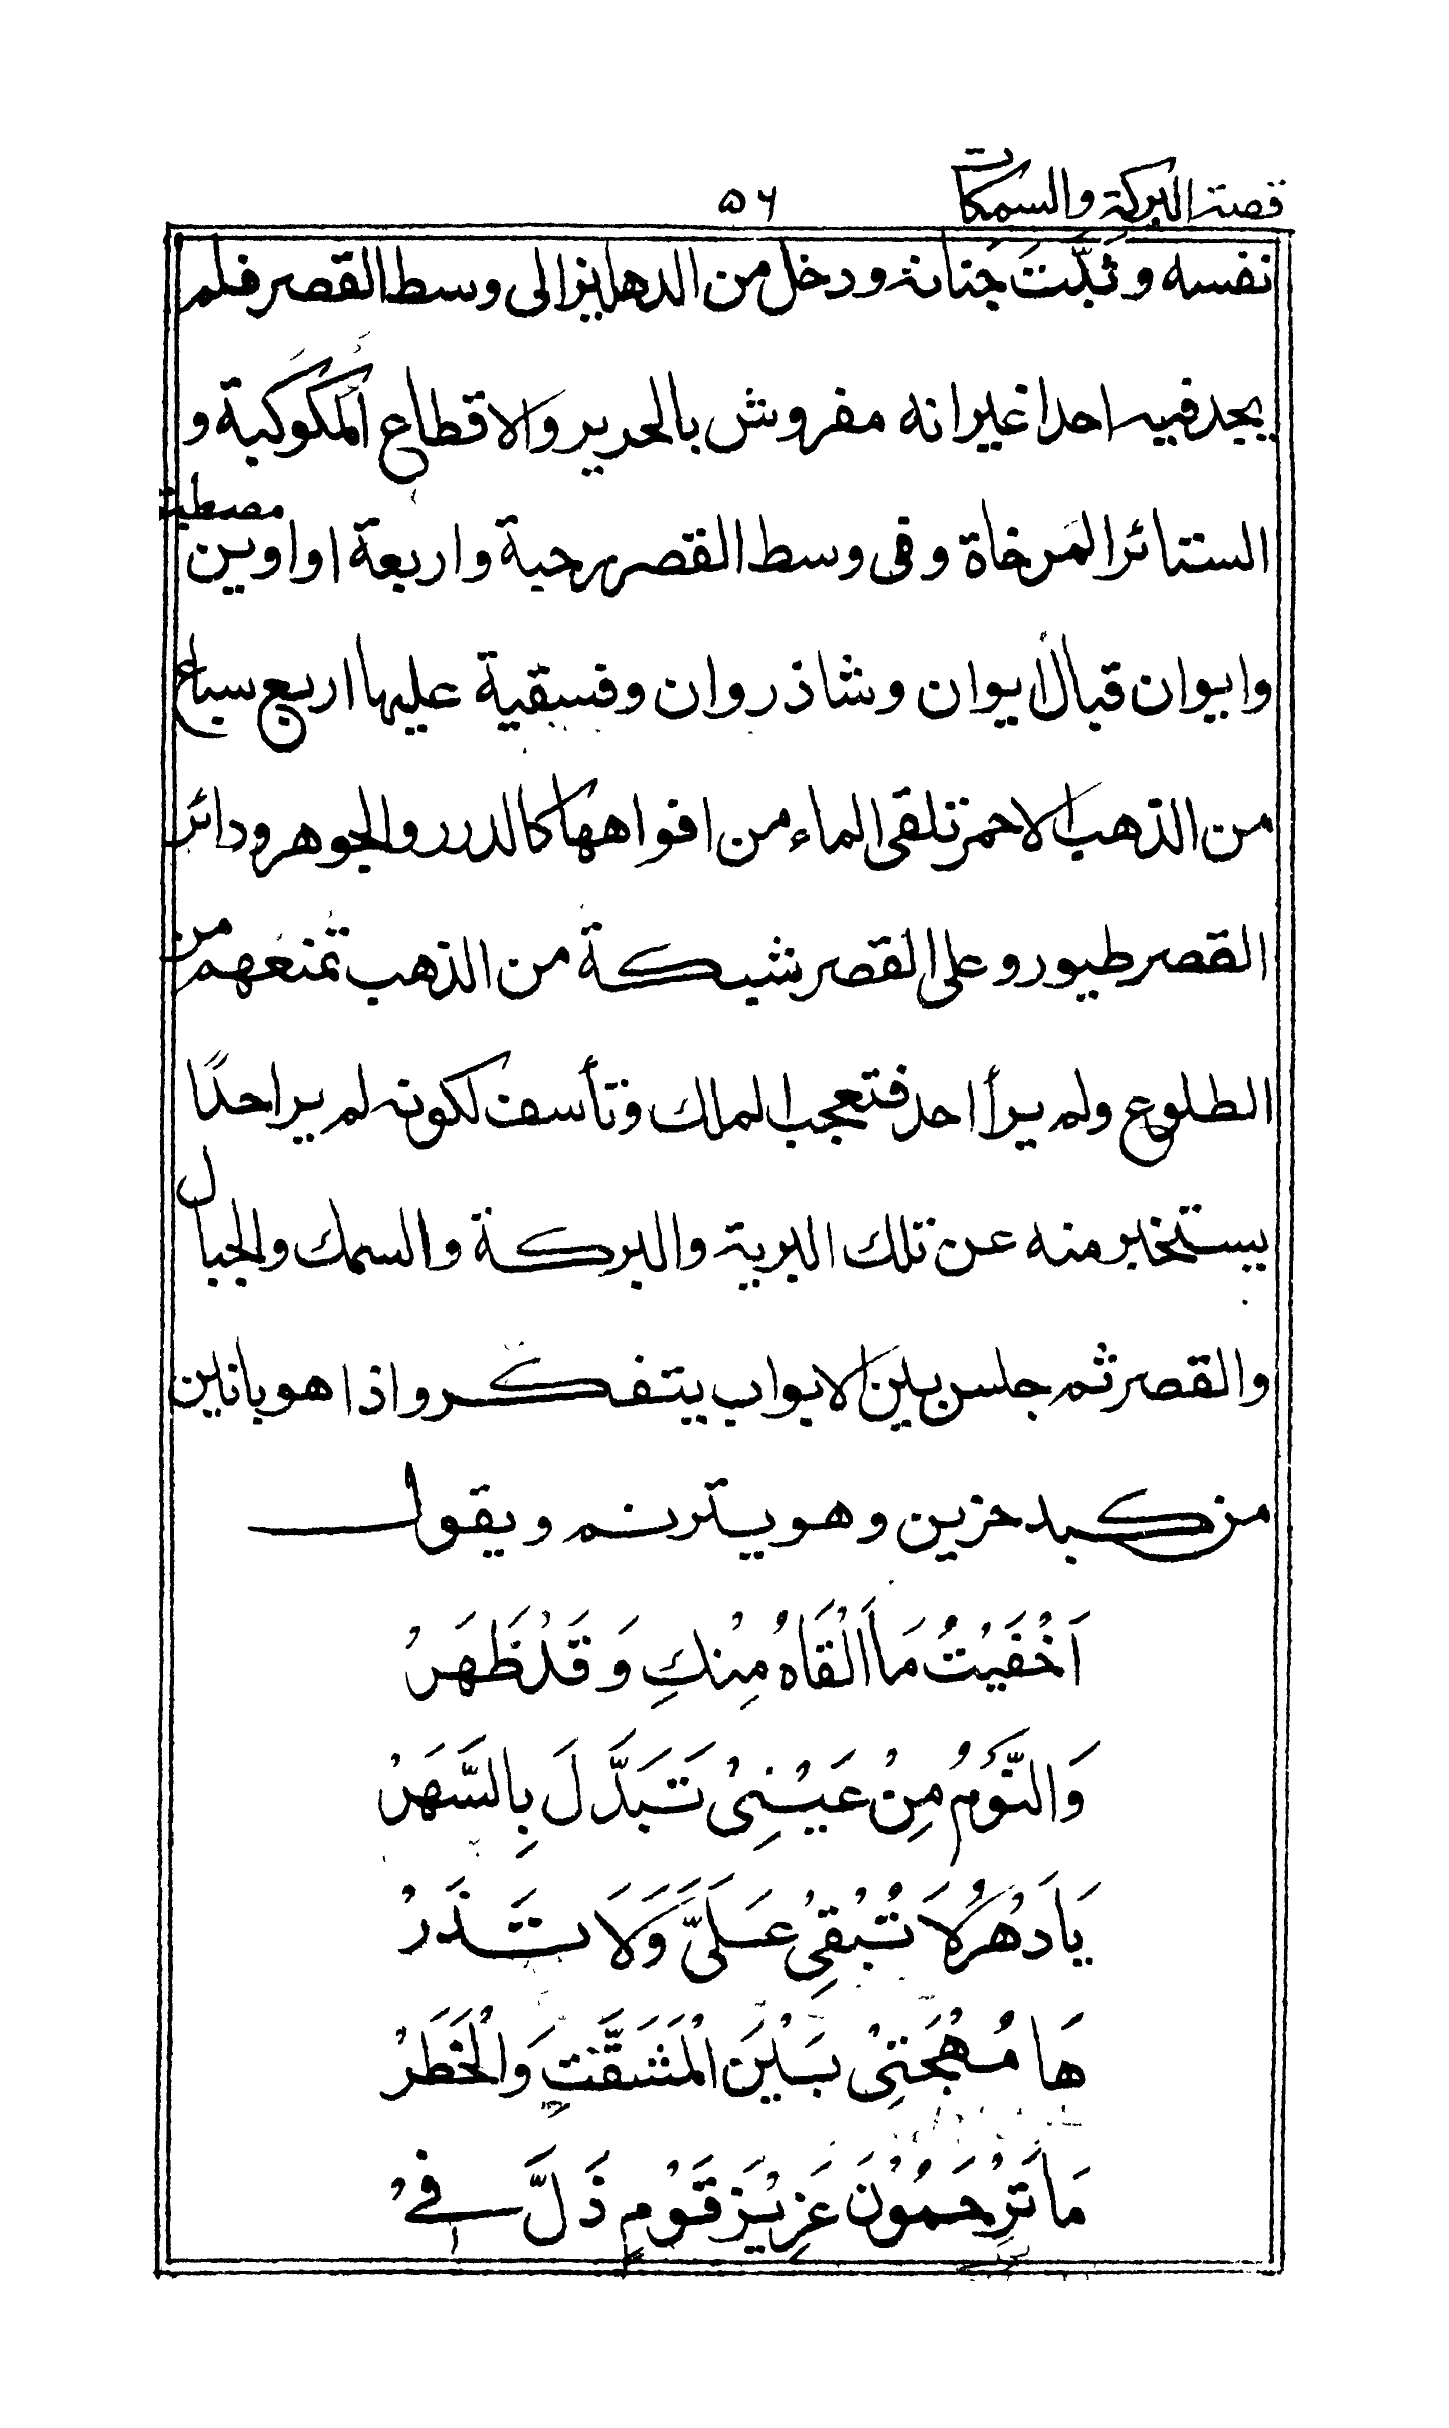 قصة البركة والسمكات ٥٦
نفسه و ثبّت جَنانه و دخل من الدهليز الى وسط القصر فلم
يجد فيه احدا غير انه مفروش بالحرير والاقطاع المُكوكبة و
الستائر المَرخاة و فى وسط القصر رحبة و اربعة اواوين مصطبة
وايوان قبال ايوان و شاذروان و فسقية عليها اربع سباع
من الذهب الاحمر تلقى الماء من افواهها كالدرر والجوهر و دائر
القصر طيور و على القصر شبكة من الذهب تمنعهم من
الطلوع ولم ير أحد فتعجب الملك و تأسف لكونه لم ير احدًا
يستخبر منه عن تلك البرية والبركة والسمك والجبال
والقصر ثم جلس بين الابواب يتفكر و اذا هو بانين
من كبد حزين و هو يترنم و يقول
اَخْفَيْتُ مَا اَلْقَاهُ مِنْكِ وَ قَدْ ظَهَرْ
وَالنَّوْمُ مِنْ عَيْنِىْ تَبَدَّلَ بِالسَّهَرْ
يَا دَهْرُ لَا تُبْقِىْ عَلَىَّ وَلَا تَذَرْ
هَا مُهْجَتِىْ بَيْنَ الْمَشَقَّتِ وَالْخَطَرْ
مَا تَرْحَمُوْنَ عَزِيْزَ قَوْمٍ ذَلَّ فِىْ